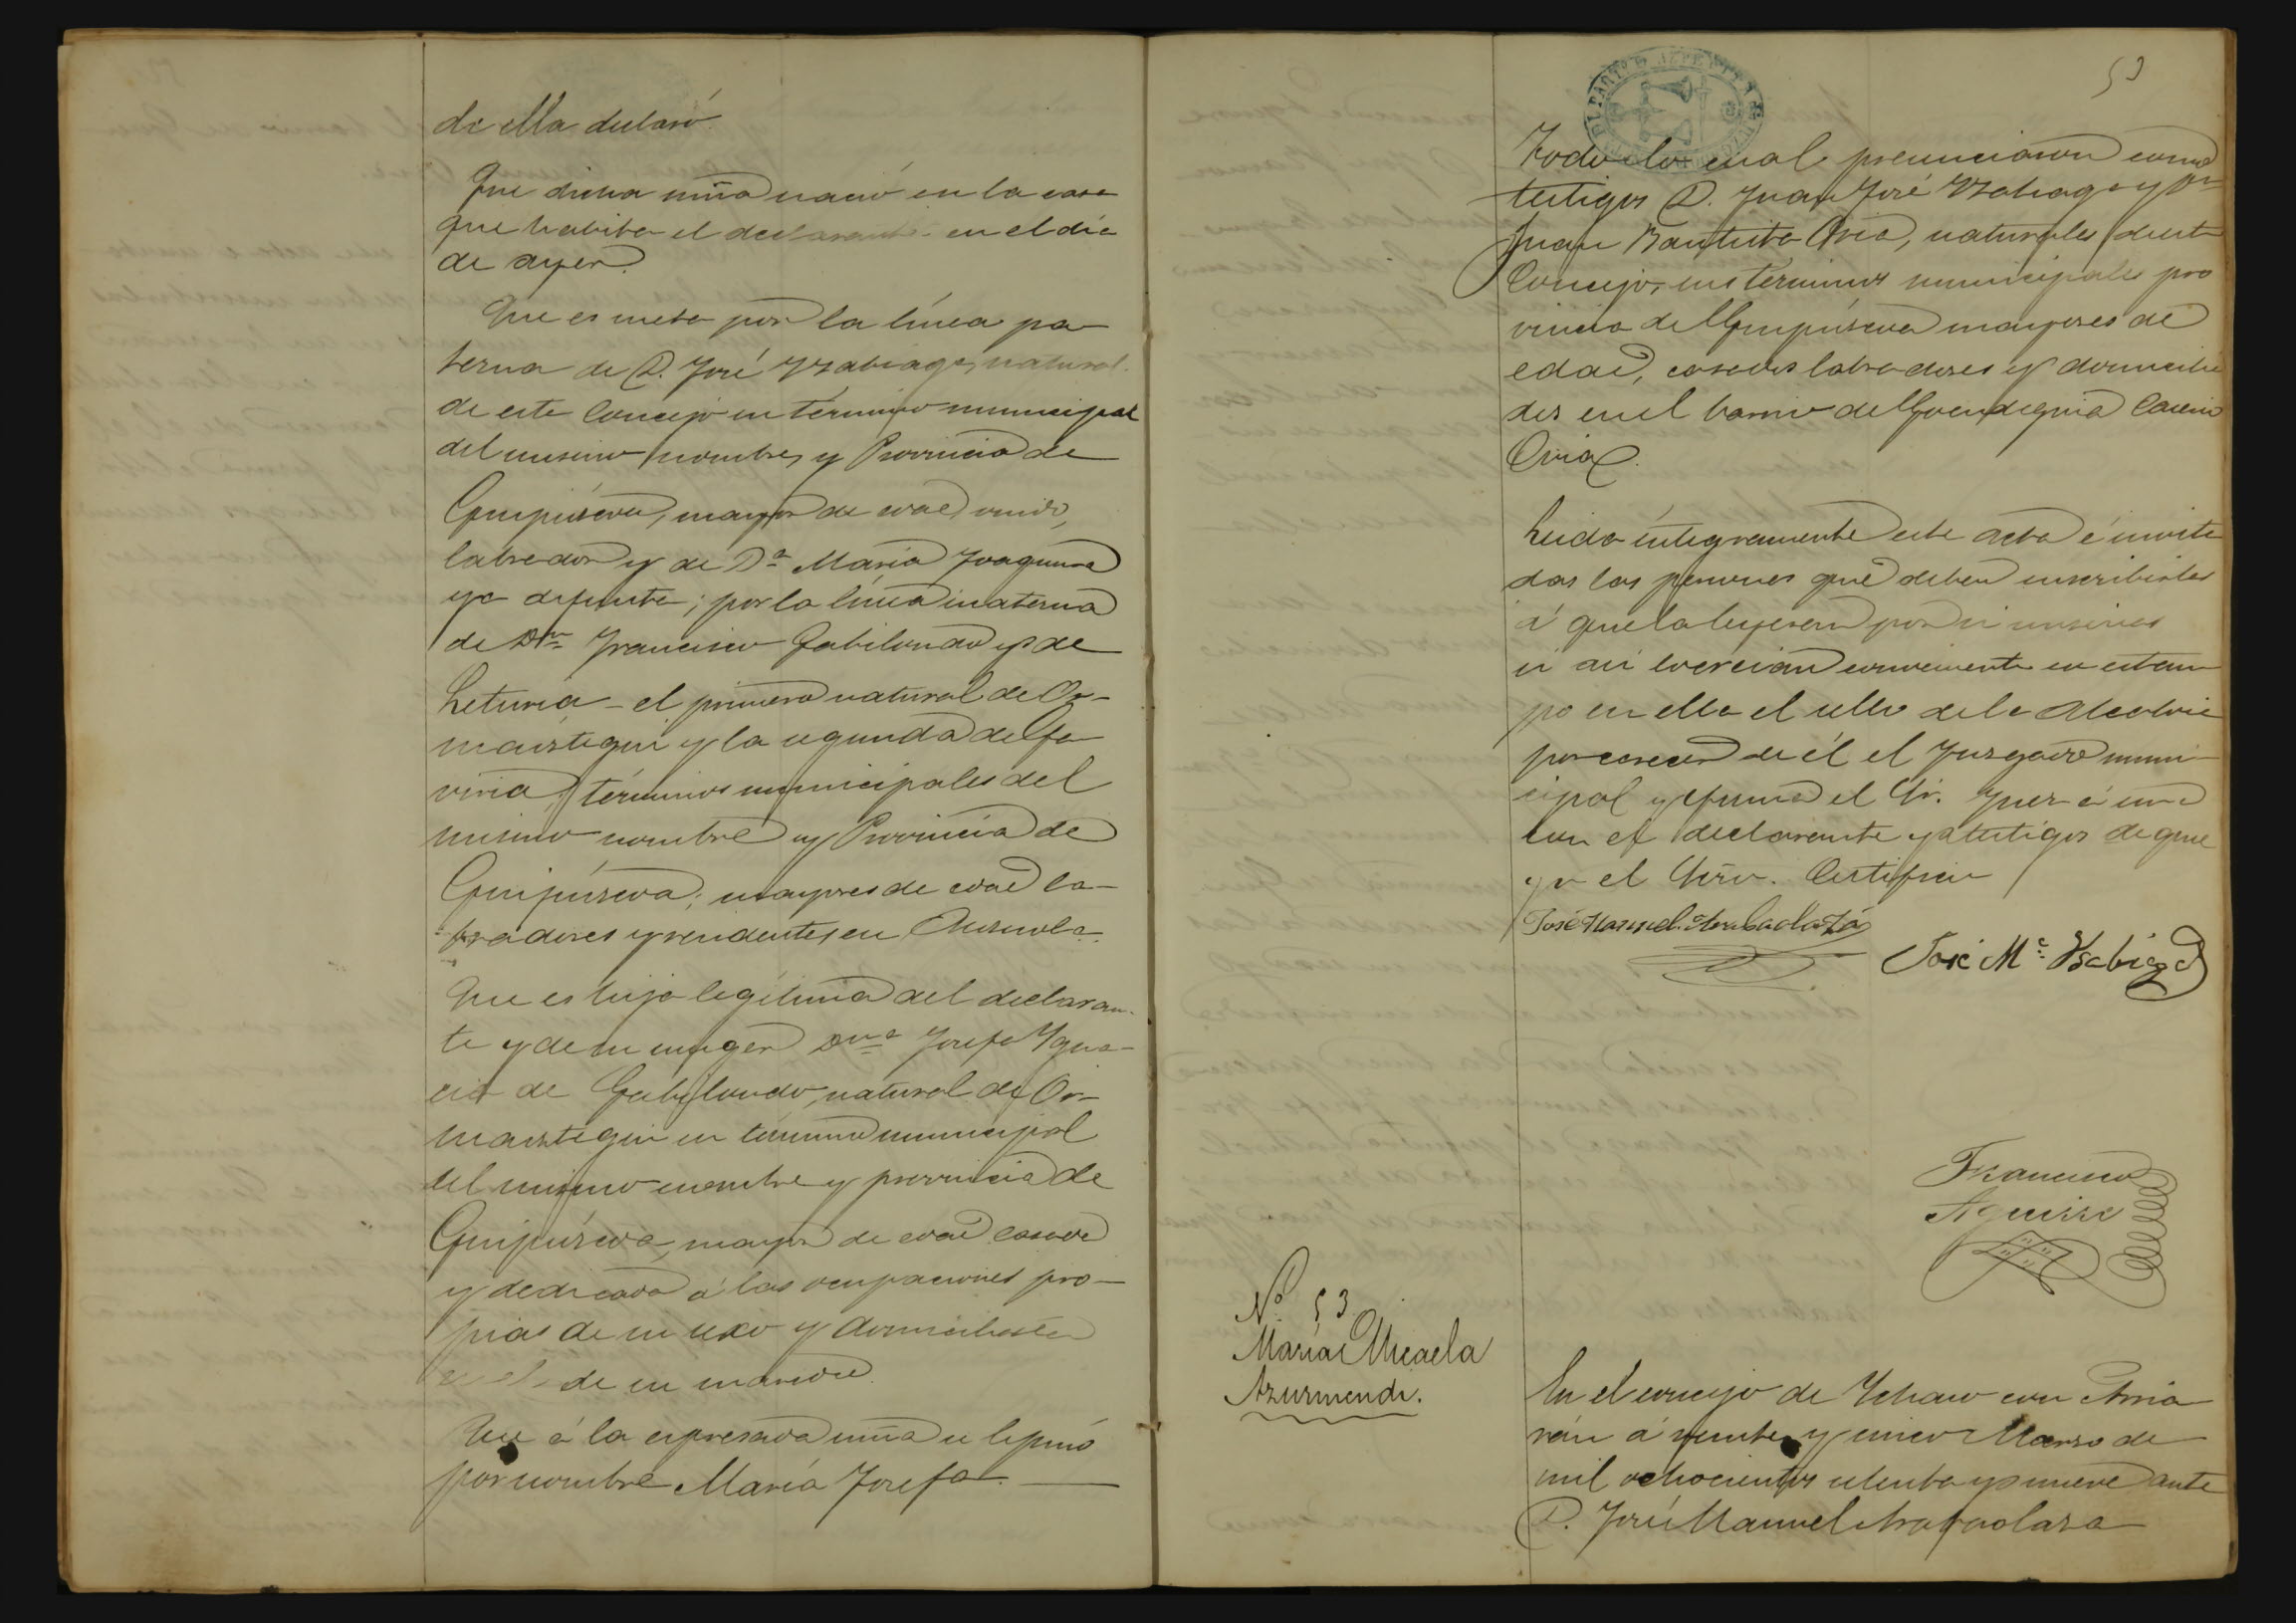 de ella declaró.
Que dicha niña nació en la casa
que habita el declarante en el día
de ayer.
Que es nieta por la línea pa-
terna de D. José Yzabiaga, natural
de este Concejo en término municipal
del mismo nombre, y Provincia de
Guipúzcoa, mayor de edad, viudo,
labrador y de Dª María Joaquina
ya difunta; por la línea materna
de Dn Francisco Gabilondo y de
Leturia - el primero natural de Or-
maiztegui y la segunda de Ga
viria, términos municipales del
mismo nombre y Provincia de
Guipúzcoa; mayores de edad la-
bradores y residentes en
Que es hija legítima del declaran-
te y de su muger Dnª Josefa Ygna-
cia de Gabilondo, natural de Or-
maiztegui en término municipal
del mismo nombre y provincia de
Guipúzcoa, mayor de edad casada
y dedicada á las ocupaciones pro-
pias de su sexo y domiciliada en
de su marido.
Que á la expresada niña se le puso
por nombre María Josefa.
53
Todo lo cual presenciaron como
testigos D. Juan José Yzabiaga y Dn
Juan Bautista Oria, naturales de este
Concejo, sus términos municipales pro
vincia de Guipúzcoa mayores de
edad, casados labradores y domicilia
dos en el barrio de Goendeguia Caserio
Oria.
Leida íntegramente este acta é invita
das las personas que deben inscribirla
á que la leyesen por si mismas
si asi lo creian conveniente se estam
po en ella el sello de la Alcaldia
por carecer de él el Juzgado muni-
cipal y firma el Sr. Juez á una
con el declarante y testigos de que
yo el Srio. Certifico
José Manuel Arabaolaza
José Mª Ysabiaga
Francisco
Aguirre
Nº 53
María Micaela
Azurmendi.
En el concejo de Ychaso con Arria
rán á veinte y cinco Marzo de
mil ochocientos setenta y nueve ante
D. José Manuel Arabaolaza